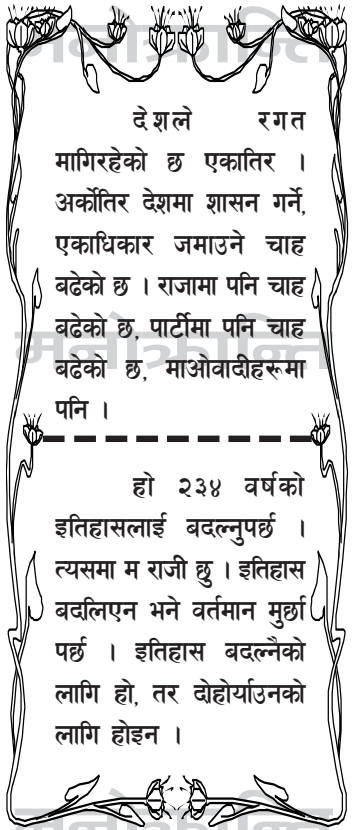 मनोक्रान्ति
देशले रगत
मागिरहेको छ एकातिर ।
अर्कोतिर देशमा शासन गर्ने,
एकाधिकार जमाउने चाह
बढेको छ । राजामा पनि चाह
बढेको छ, पार्टीमा पनि चाह
मनोक्रान्ति
बढेको छ, माओवादीहरूमा
पनि ।
हो २३४ वर्षको
इतिहासलाई बदल्नुपर्छ ।
त्यसमा म राजी छु । इतिहास
बदलिएन भने वर्तमान मुर्छा
पर्छ । इतिहास बदल्नैको
लागि हो, तर दोहोर्याउनको
लागि होइन ।
मनोक्रान्ति